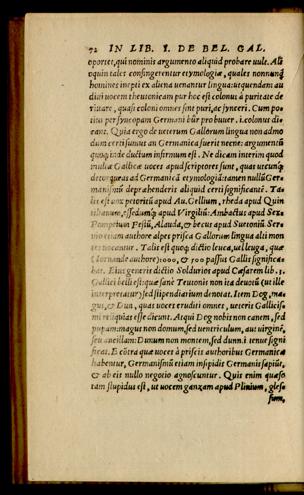 72 IN LIB. I. DE BEL. GAL.
oportet, qui nominis argumento aliquid probare uult. Ali
oquin tales confingerentur etymologiæ, quales nonnunq̃
homines inepti ex aliena uenantur lingua:
diui uocem theutonicam pur hoc est clonus à puritate de
riuare, quasi coloni omnes sint puri, ac synceri. Cum po-
tius per syncopam Germani bûr pro buuer. i. colonus di-
cant. Quia ergo de ueterum Gallorum lingua non admo
dum certi sumus an Germanica fuerit necne: argumentū
quoq; inde ductum infirmum est. Ne dicam interim quod
priscæ Gallicæ uoces apud scriptores sunt, quas utcunq;
detorqueas ad Germanicā etymologiā: tamen nullū Ger-
manismū depræhenderis aliquid certi significantē. Ta-
lis est uox petoritū apud Au. Gellium, rheda apud Quin
tilianum, essedumq́; apud Virgiliū: Ambactus apud Sex.
Pompeium Festū, Alauda, & becus apud Suetoniū. Ser-
uio etiam authore alpes prisca Gallorum lingua alti mon
tes uocantur. Talis est quoq; dictio leuca, uel leuga, quæ
(Iornande authore) 1000, & 500 passus Gallis significa-
bat. Eius generis dictio Soldurios apud Cæsarem lib. 3.
Gallici belli est: quæ sanè Teutonis non ita deuotū (ut ille
interpretatur) sed stipendiarium denotat. Item Dog, ma-
gus, & Dun, quas uoces eruditi omnes, ueteris Gallicis-
mi reliquias esse dicunt. Atqui Dog nobis non canem, sed
pupam: magus non domum, sed uentriculum, aut uirginē,
seu ancillam: Dunum non montem, sed dunn. i. tenue signi
ficat. E cōtra quæ uoces à priscis authoribus Germanicæ
habentur, Germanismū etiam insipidis Germanis sapiūt,
& ab eis nullo negotio agnoscuntur. Quis enim quæso
tam stupidus est, ut uocem ganzam apud Plinium, gleso
sum,